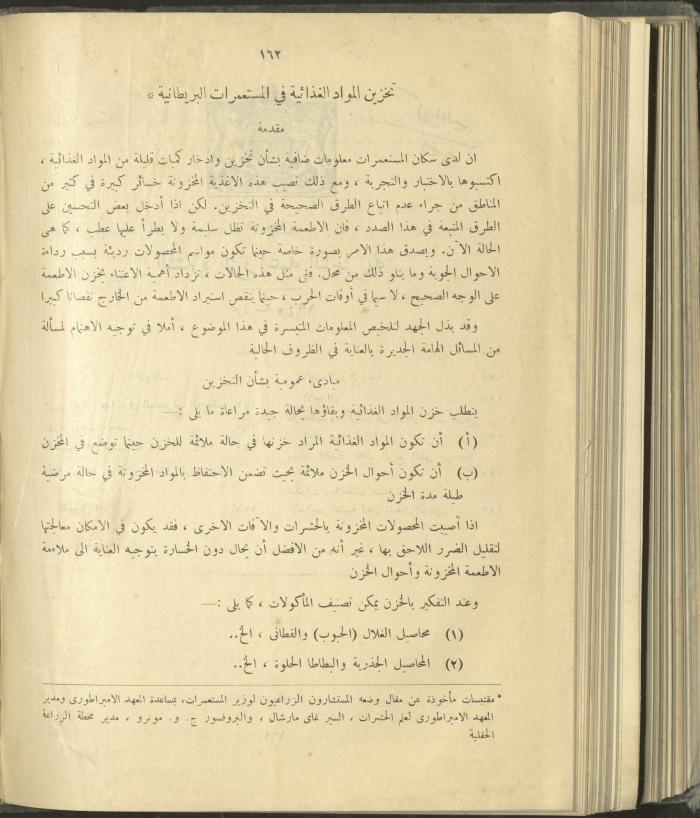 ١٦٢
تخزين المواد الغذائية في المستعمرات البريطانية *
مقدمة
ان لدى سكان المستعمرات معلومات ضافية بشأن تخزين وادخار كميات قليلة من المواد الغذائية ،
اكتسبوها بالاختبار والتجربة ، ومع ذلك تصيب هذه الاغذية المخزونة خسائر كبيرة في كثير من
المناطق من جراء عدم اتباع الطرق الصحيحة في التخزين. لكن اذا أدخل بعض التحسين على
الطرق المتبعة في هذا الصدد ، فان الاطعمة المخزونة تظل سليمة ولا يطرأ عليها عطب ، كما هي
الحالة الآن. ويصدق هذا الامر بصورة خاصة حينما تكون مواسم المحصولات رديئة بسبب رداءة
الاحوال الجوية وما يتلو ذلك من محل. ففي مثل هذه الحالات ، تزداد أهمية الاعتناء بخزن الاطعمة
على الوجه الصحيح ، لا سيما في أوقات الحرب ، حينما ينقص استيراد الاطعمة من الخارج نقصانا كبيرا
وقد بذل الجهد لتلخيص المعلومات المتيسرة في هذا الموضوع ، أملا في توجيه الاهتمام لمسألة
من المسائل الهامة الجديرة بالعناية في الظروف الحالية
مبادىء عمومية بشأن التخزين
يتطلب خزن المواد الغذائية وبقاؤها بحالة جيدة مراعاة ما يلي :—
(أ) أن تكون المواد الغذائية المراد خزنها في حالة ملائمة للخزن حينما توضع في المخزن
(ب) أن تكون أحوال الخزن ملائمة بحيث تضمن الاحتفاظ بالمواد المخزونة في حالة مرضية
طيلة مدة الخزن
اذا أصيبت المحصولات المخزونة بالحشرات والآفات الاخرى ، فقد يكون في الامكان معالجتها
لتقليل الضرر اللاحق بها ، غير أنه من الافضل أن يحال دون الخسارة بتوجيه العناية الى ملاءمة
الاطعمة المخزونة وأحوال الخزن
وعند التفكير بالخزن يمكن تصنيف المأكولات ، كما يلي :—
(١) محاصيل الغلال (الحبوب) والقطاني ، الخ..
(٢) المحاصيل الجذرية والبطاطا الحلوة ، الخ..
* مقتبسات مأخوذة عن مقال وضعه المستشارون الزراعيون لوزير المستعمرات، بمساعدة المعهد الامبراطوري ومدير
المعهد الامبراطوري لعلم الحشرات ، السير غاي مارشال ، والبروفسور ج. و. مونرو ، مدير محطة الزراعة
الحقلية